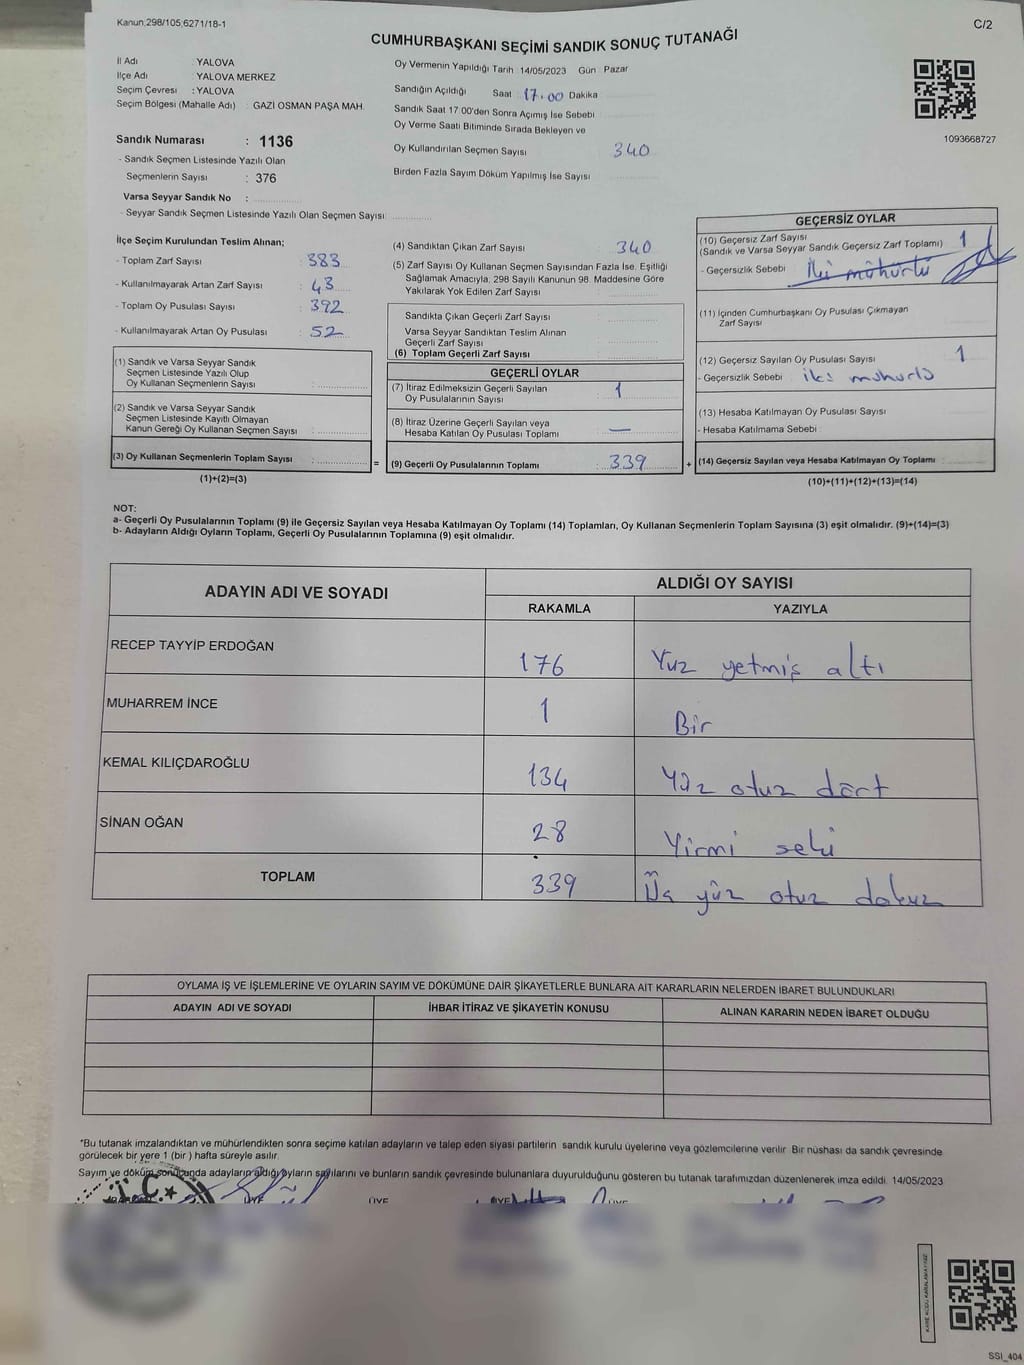 Kanun:298/105;6271/18-1
C/2
CUMHURBAŞKANI SEÇİMİ SANDIK SONUÇ TUTANAĞI
İl Adı : YALOVA
İlçe Adı : YALOVA MERKEZ
Seçim Çevresi : YALOVA
Seçim Bölgesi (Mahalle Adı) : GAZİ OSMAN PAŞA MAH.
Sandık Numarası : 1136
- Sandık Seçmen Listesinde Yazılı Olan
Seçmenlerin Sayısı : 376
Varsa Seyyar Sandık No :
- Seyyar Sandık Seçmen Listesinde Yazılı Olan Seçmen Sayısı:
Oy Vermenin Yapıldığı Tarih 14/05/2023 Gün Pazar
Sandığın Açıldığı Saat 17.00 Dakika
Sandık Saat 17:00'den Sonra Açımış İse Sebebi
Oy Verme Saati Bitiminde Sırada Bekleyen ve
Oy Kullandırılan Seçmen Sayısı 340
Birden Fazla Sayım Döküm Yapılmış İse Sayısı
1093668727
İlçe Seçim Kurulundan Teslim Alınan;
- Toplam Zarf Sayısı : 383
- Kullanılmayarak Artan Zarf Sayısı : 43
- Toplam Oy Pusulası Sayısı : 392
- Kullanılmayarak Artan Oy Pusulası : 52
(1) Sandık ve Varsa Seyyar Sandık
Seçmen Listesinde Yazılı Olup
Oy Kullanan Seçmenlerin Sayısı :
(2) Sandık ve Varsa Seyyar Sandık
Seçmen Listesinde Kayıtlı Olmayan
Kanun Gereği Oy Kullanan Seçmen Sayısı :
(3) Oy Kullanan Seçmenlerin Toplam Sayısı : =
(1)+(2)=(3)
(4) Sandıktan Çıkan Zarf Sayısı : 340
(5) Zarf Sayısı Oy Kullanan Seçmen Sayısından Fazla İse, Eşitliği
Sağlamak Amacıyla, 298 Sayılı Kanunun 98. Maddesine Göre
Yakılarak Yok Edilen Zarf Sayısı :
Sandıkta Çıkan Geçerli Zarf Sayısı :
Varsa Seyyar Sandıktan Teslim Alınan
Geçerli Zarf Sayısı :
(6) Toplam Geçerli Zarf Sayısı :
GEÇERLİ OYLAR
(7) İtiraz Edilmeksizin Geçerli Sayılan
Oy Pusulalarının Sayısı : 1
(8) İtiraz Üzerine Geçerli Sayılan veya
Hesaba Katılan Oy Pusulası Toplamı : —
(9) Geçerli Oy Pusulalarının Toplamı : 339 +
GEÇERSİZ OYLAR
(10) Geçersiz Zarf Sayısı
(Sandık ve Varsa Seyyar Sandık Geçersiz Zarf Toplamı) : 1
- Geçersizlik Sebebi : İki mühürlü
(11) İçinden Cumhurbaşkanı Oy Pusulası Çıkmayan
Zarf Sayısı
(12) Geçersiz Sayılan Oy Pusulası Sayısı : 1
- Geçersizlik Sebebi : iki mühürlü
(13) Hesaba Katılmayan Oy Pusulası Sayısı
- Hesaba Katılmama Sebebi :
(14) Geçersiz Sayılan veya Hesaba Katılmayan Oy Toplamı :
(10)+(11)+(12)+(13)=(14)
NOT:
a- Geçerli Oy Pusulalarının Toplamı (9) ile Geçersiz Sayılan veya Hesaba Katılmayan Oy Toplamı (14) Toplamları, Oy Kullanan Seçmenlerin Toplam Sayısına (3) eşit olmalıdır. (9)+(14)=(3)
b- Adayların Aldığı Oyların Toplamı, Geçerli Oy Pusulalarının Toplamına (9) eşit olmalıdır.
ADAYIN ADI VE SOYADI
ALDIĞI OY SAYISI
RAKAMLA YAZIYLA
RECEP TAYYİP ERDOĞAN 176 Yüz yetmiş altı
MUHARREM İNCE 1 Bir
KEMAL KILIÇDAROĞLU 134 Yüz otuz dört
SİNAN OĞAN 28 Yirmi seki
TOPLAM 339 Üç yüz otuz dokuz
OYLAMA İŞ VE İŞLEMLERİNE VE OYLARIN SAYIM VE DÖKÜMÜNE DAİR ŞİKAYETLERLE BUNLARA AİT KARARLARIN NELERDEN İBARET BULUNDUKLARI
ADAYIN ADI VE SOYADI İHBAR İTİRAZ VE ŞİKAYETİN KONUSU ALINAN KARARIN NEDEN İBARET OLDUĞU
*Bu tutanak imzalandıktan ve mühürlendikten sonra seçime katılan adayların ve talep eden siyasi partilerin sandık kurulu üyelerine veya gözlemcilerine verilir. Bir nüshası da sandık çevresinde
görülecek bir yere 1 (bir ) hafta süreyle asılır.
Sayım ve döküm sonucunda adayların aldığı oyların sayılarını ve bunların sandık çevresinde bulunanlara duyurulduğunu gösteren bu tutanak tarafımızdan düzenlenerek imza edildi. 14/05/2023
T.C.
ÜYE ÜYE ÜYE ÜYE
SSI_404